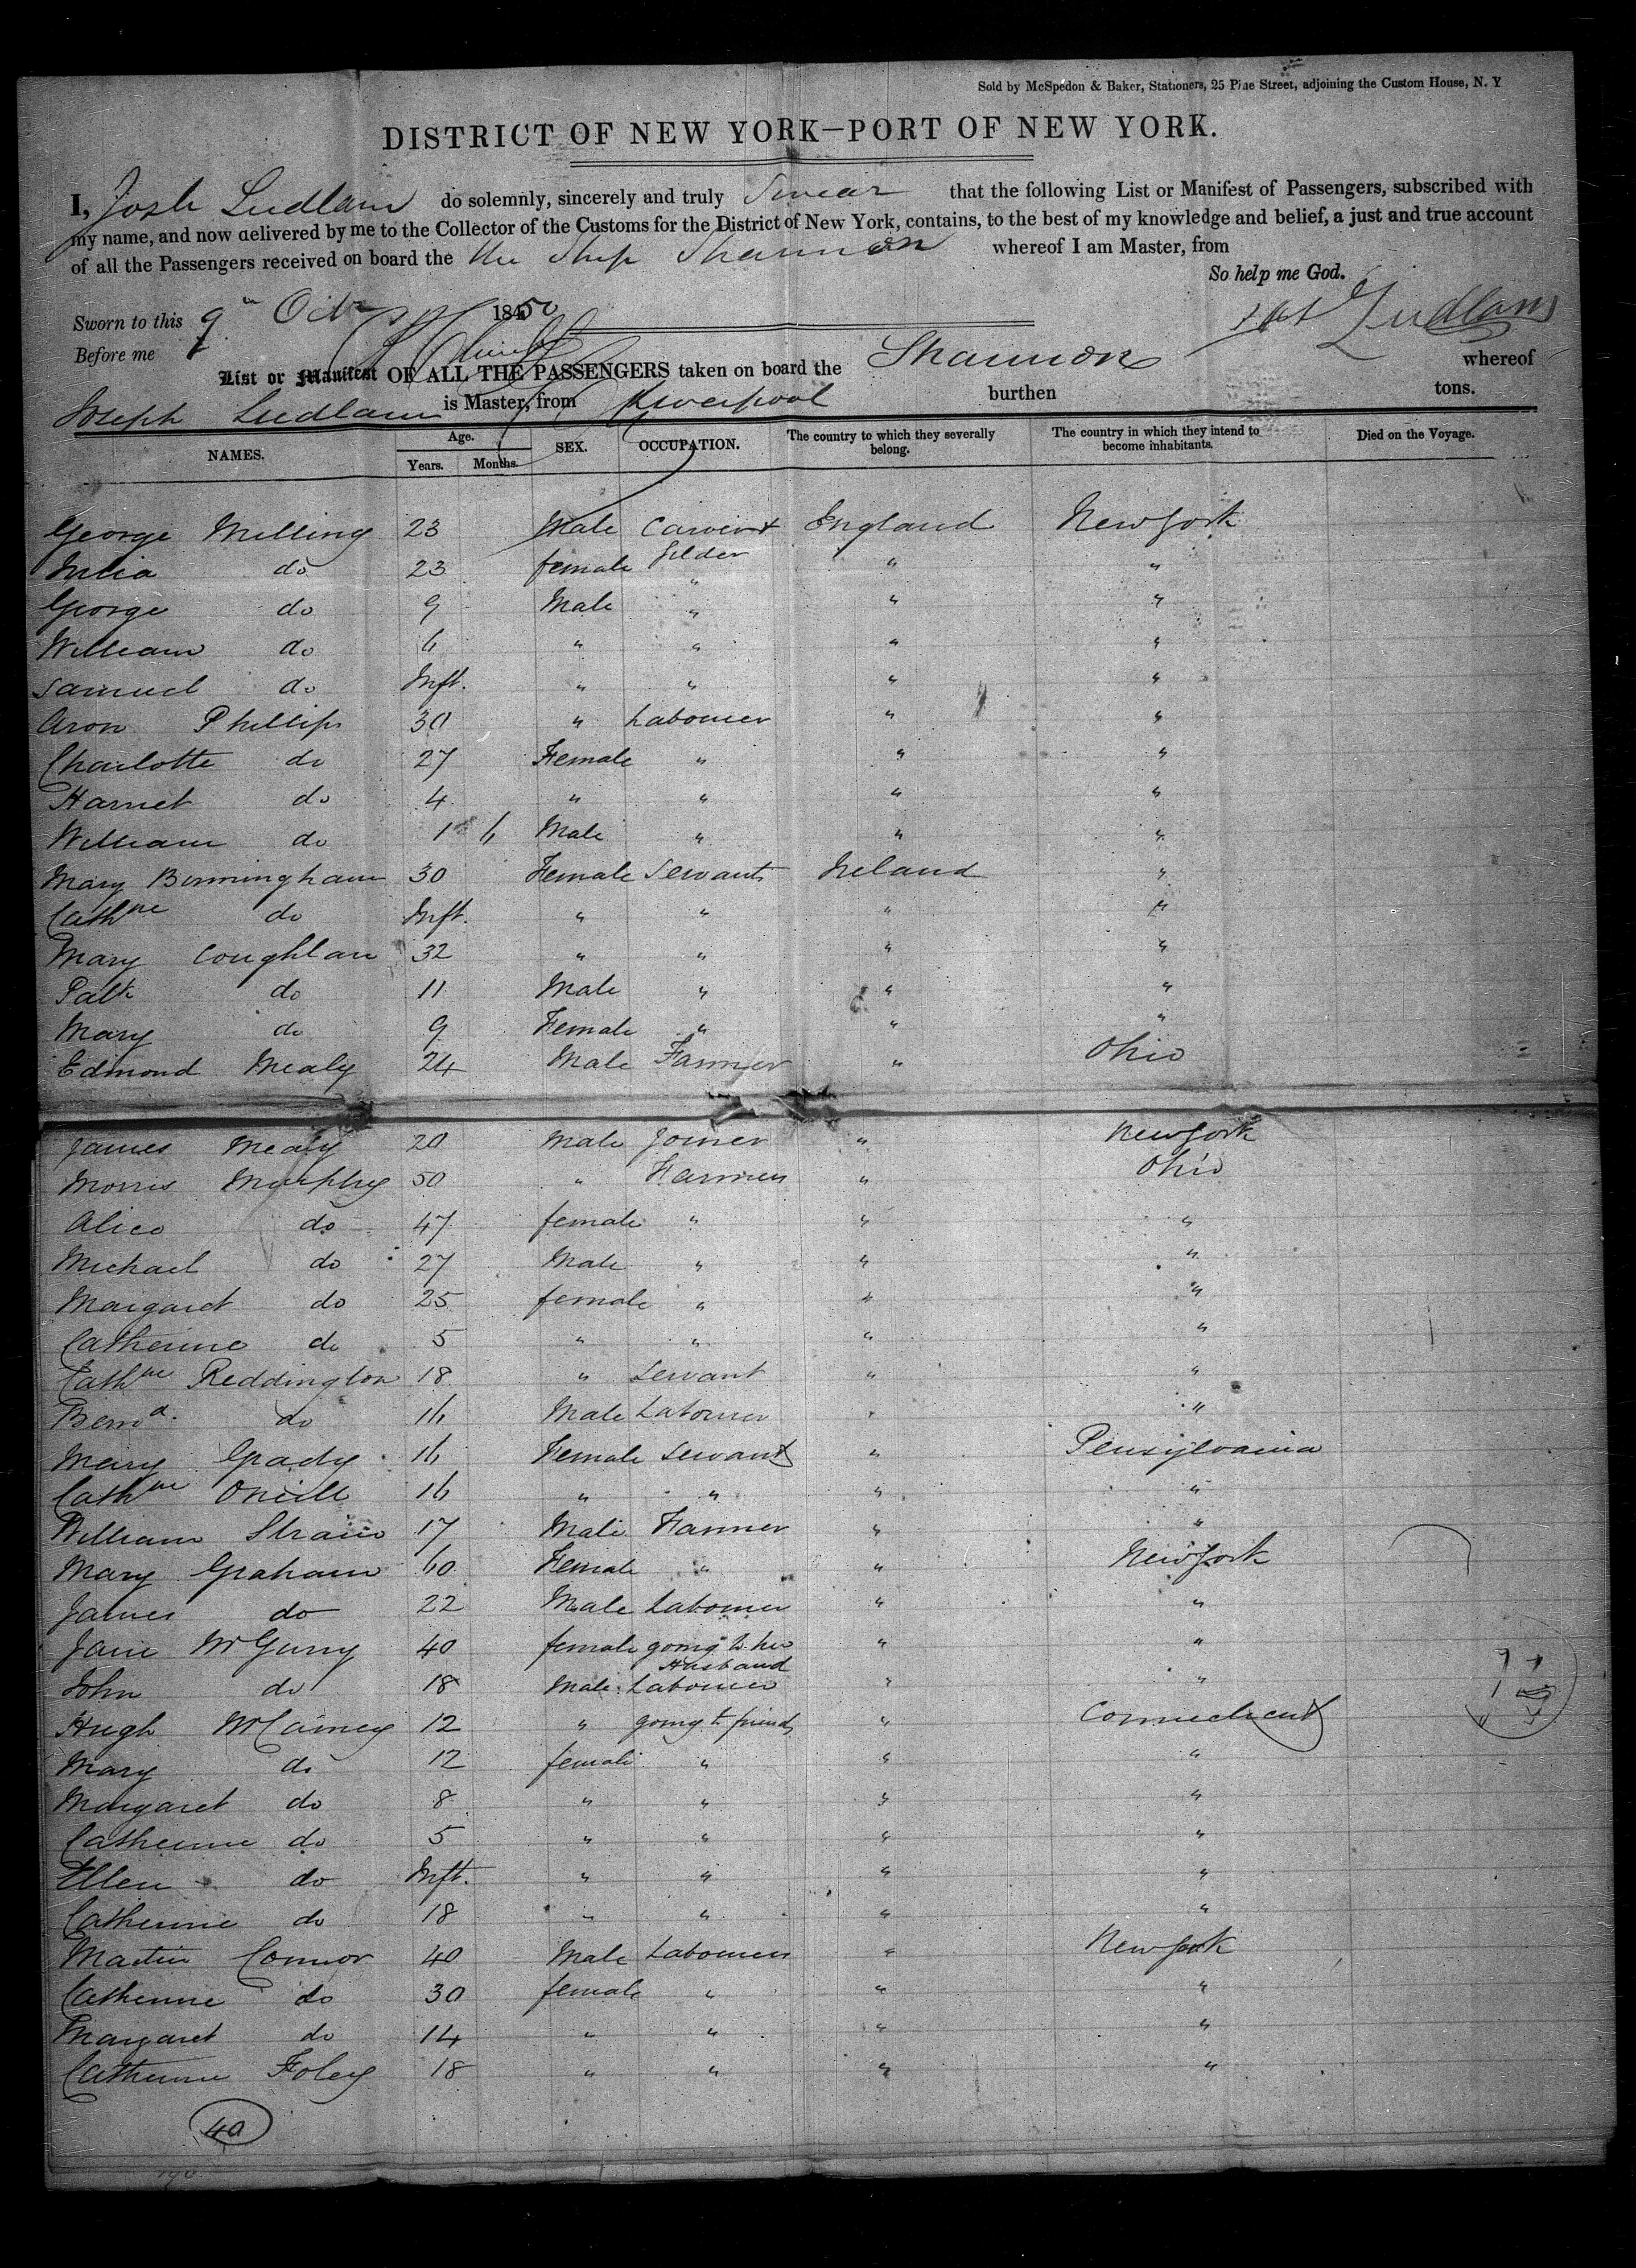 Sold by McSpedon & Baker, Stationers, 25 Pine Street, adjoining the Custom House, N. Y
DISTRICT OF NEW YORK—PORT OF NEW YORK.
I, Josh Ludlam do solemnly, sincerely and truly Swear that the following List or Manifest of Passengers, subscribed with
my name, and now delivered by me to the Collector of the Customs for the District of New York, contains, to the best of my knowledge and belief, a just and true account
of all the Passengers received on board the the Ship Shannon whereof I am Master, from
So help me God.
Sworn to this 9th Octr 1850 Ludlam
Before me
List or Manifest OF ALL THE PASSENGERS taken on board the Shannon whereof
Joseph Ludlam is Master, from Liverpool burthen tons.
NAMES. Age. Years. Months. SEX. OCCUPATION. The country to which they severally belong. The country in which they intend to become inhabitants. Died on the Voyage.
George Milling 23 Male Carver & England New York
Gilder
Julia do 23 female " " "
George do 9 Male " " "
William do 6 " " " "
Samuel do Inft. " " " "
Aron Phillips 30 " Labourer " "
Charlotte do 27 Female " " "
Harriet do 4 " " " "
William do 1 6 Male " " "
Mary Birmingham 30 Female Servants Ireland "
Cathne do Inft. " " " "
Mary Coughlan 32 " " " "
Patk do 11 Male " " "
Mary do 9 Female " " "
Edmond Mealy 24 Male Farmer " Ohio
James Mealy 20 Male Joiner " New York
Morris Murphy 50 " Farmer " Ohio
Alice do 47 female " " "
Michael do 27 Male " " "
Margaret do 25 female " " "
Catherine do 5 " " " "
Cathne Reddington 18 " Servant " "
Bernd. do 16 Male Labourer " "
Mary Grady 16 Female Servant " Pensylvania
Cathne Oneill 16 " " " "
William Strain 17 Male Farmer " "
Mary Graham 60 Female " " New York
James do 22 Male Labourer " "
Jane McGurry 40 female going to her " "
Husband
John do 18 Male Labourer " "
Hugh McCamey 12 " going to friends " Connecticut
Mary do 12 female " " "
Margaret do 8 " " " "
Catherine do 5 " " " "
Ellen do Inft. " " " "
Catherine do 18 " " " "
Martin Connor 40 Male Labourer " New York
Catherine do 30 female " " "
Margaret do 14 " " " "
Catherine Foley 18 " " " "
40